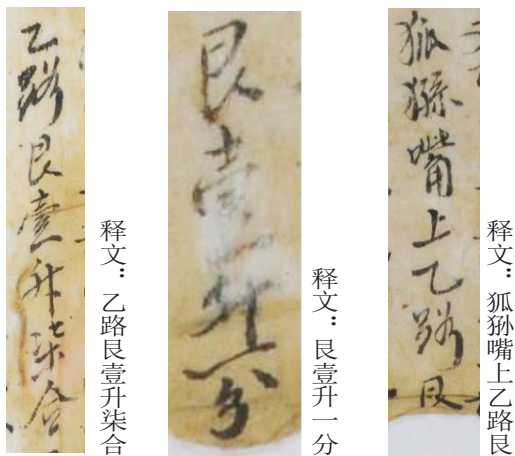 乙路艮壹升柒合
释文：乙路艮壹升柒合
艮壹升一分
释文：艮壹升一分
狐狲嘴上乙路艮
释文：狐狲嘴上乙路艮